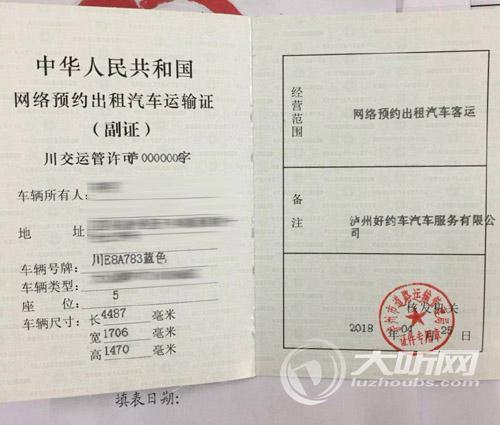 中华人民共和国
网络预约出租汽车运输证
(副证)
川交运管许可泸000000字
车辆所有人:
地 址
车辆号牌: 川E8A783蓝色
车辆类型:
座 位: 5
车辆尺寸: 长 4487 毫米
宽 1706 毫米
高 1470 毫米
填表日期:
经营范围
网络预约出租汽车客运
备注
泸州好约车汽车服务有限公
司
核发机关
2018 年 04 月 25 日
泸州市道路运输管理局
证件专用章
大听网
luzhoubs.com